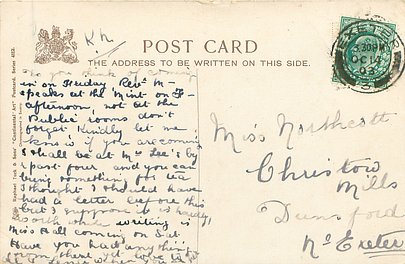 Kh
POST CARD
THE ADDRESS TO BE WRITTEN ON THIS SIDE.
EXETER
3.30PM
OC 14
03
you think of coming
in on Friday Rev. M—
speaks at the Mint on F—
afternoon, not at the
Public rooms don't
forget. Kindly let me
know if you are coming
I shall be at Mrs Lee's by
past four and you can
bring something for tea
thought I should have
had a letter before this
but I suppose it is hardly
worth while writing is
Miss Hall coming on Sat.
Have you had anything
from there yet
Miss Northcott
Christow
Mills
Dunsford
Nr Exeter